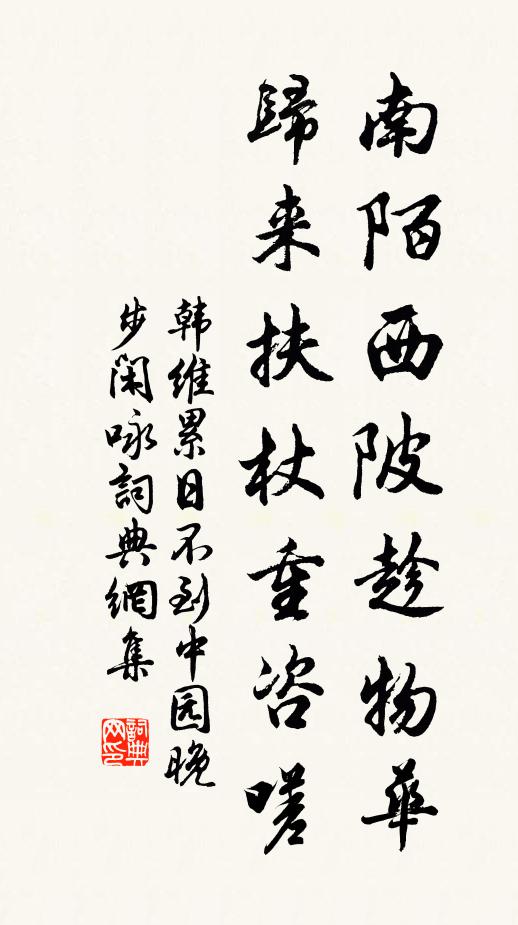 南陌西陂趁物華
歸来扶杖重咨嗟
韩維累日不到中园晚
步閑咏詞典網集
詞典网印